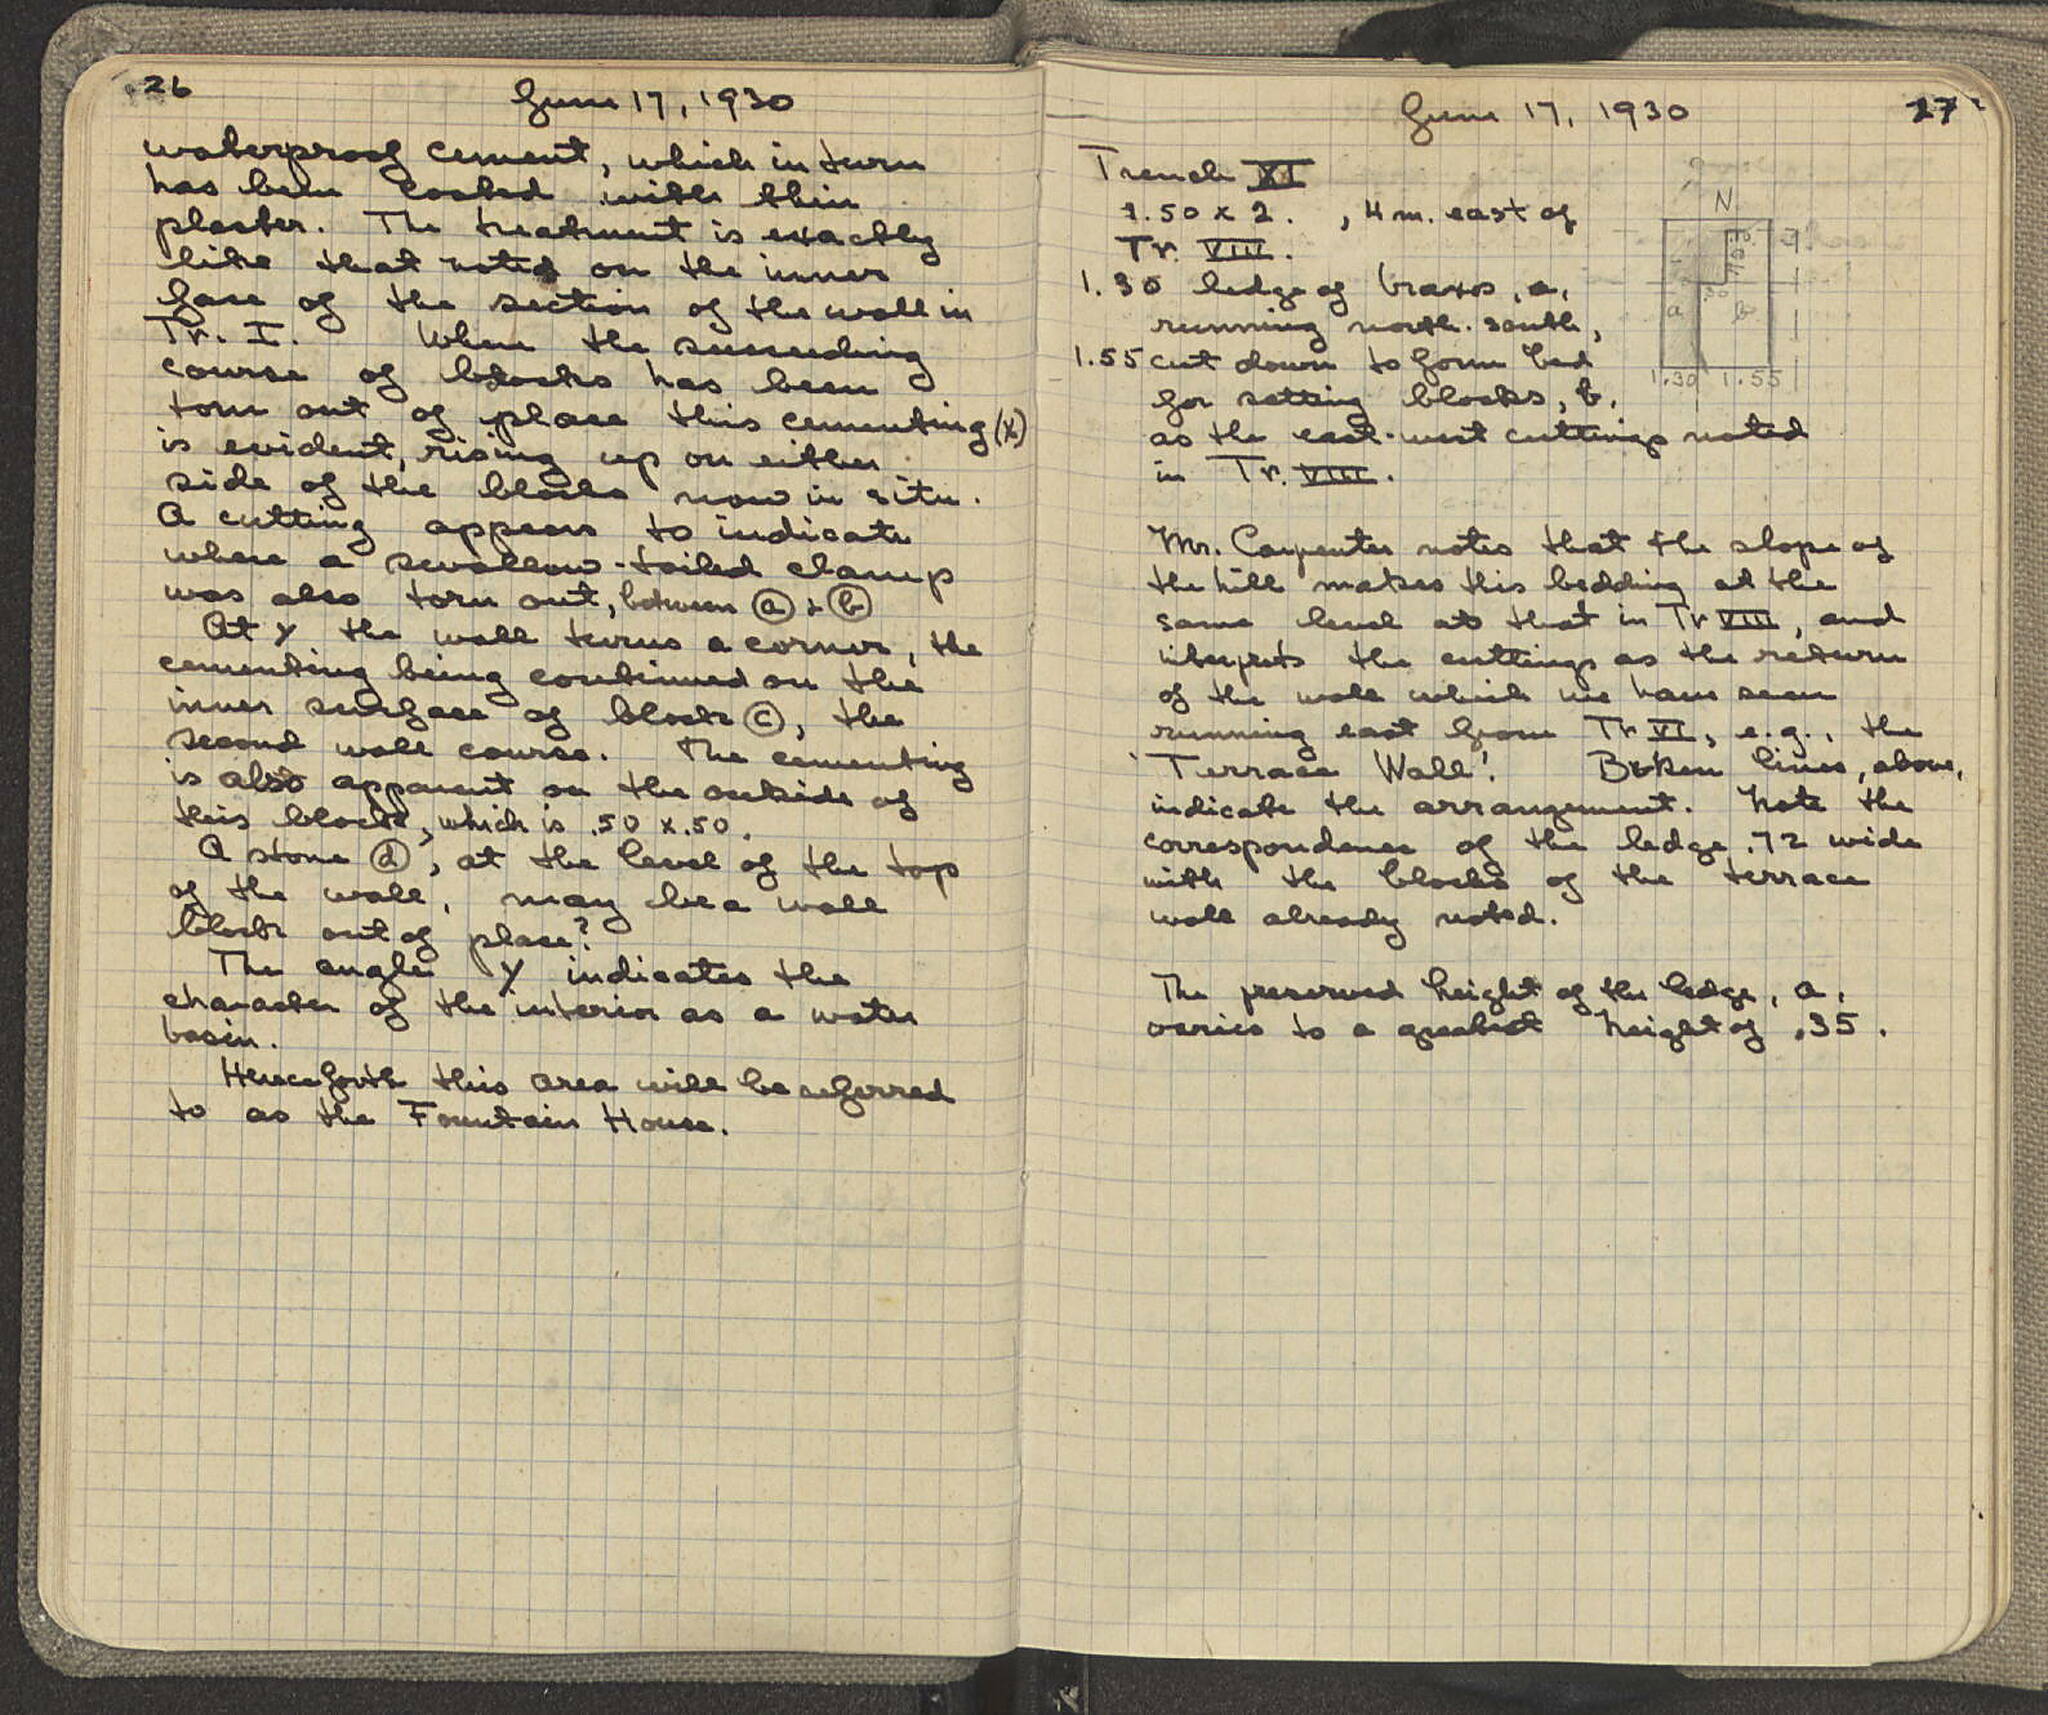 26
June 17, 1930
waterproof cement, which in turn
has been coated with thin
plaster. The treatment is exactly
like that noted on the inner
face of the section of the wall in
Tr. I. When the succeeding
course of blocks has been
torn out of place this cementing (x)
is evident, rising up on either
side of the blocks now in situ.
A cutting appears to indicate
where a swallow-tailed clamp
was also torn out, between (a) & (b)
At Y the wall turns a corner, the
cementing being continued on the
inner surface of block (c), the
second wall course. The cementing
is also apparent on the outside of
this block, which is .50 x .50.
A stone (d), at the level of the top
of the wall, may be a wall
block out of place?
The angle Y indicates the
character of the interior as a water
basin.
Henceforth this area will be referred
to as the Fountain House.
June 17, 1930
27
Trench XI
1.50 x 2. , 4 m. east of
Tr. VIII.
1.30 ledge of braxos, a,
running north-south,
1.55 cut down to form bed
for setting blocks, b,
as the east-west cuttings noted
in Tr. VIII.
N
a
b
1.30 1.55
Mr. Carpenter notes that the slope of
the hill makes this bedding at the
same level as that in Tr VIII, and
interprets the cuttings as the return
of the wall which we have seen
running east from Tr VI, e.g., the
'Terrace Wall'. Broken lines, above,
indicate the arrangement. Note the
correspondence of the ledge .72 wide
with the blocks of the terrace
wall already noted.
The preserved height of the ledge, a,
varies to a greatest height of .35.